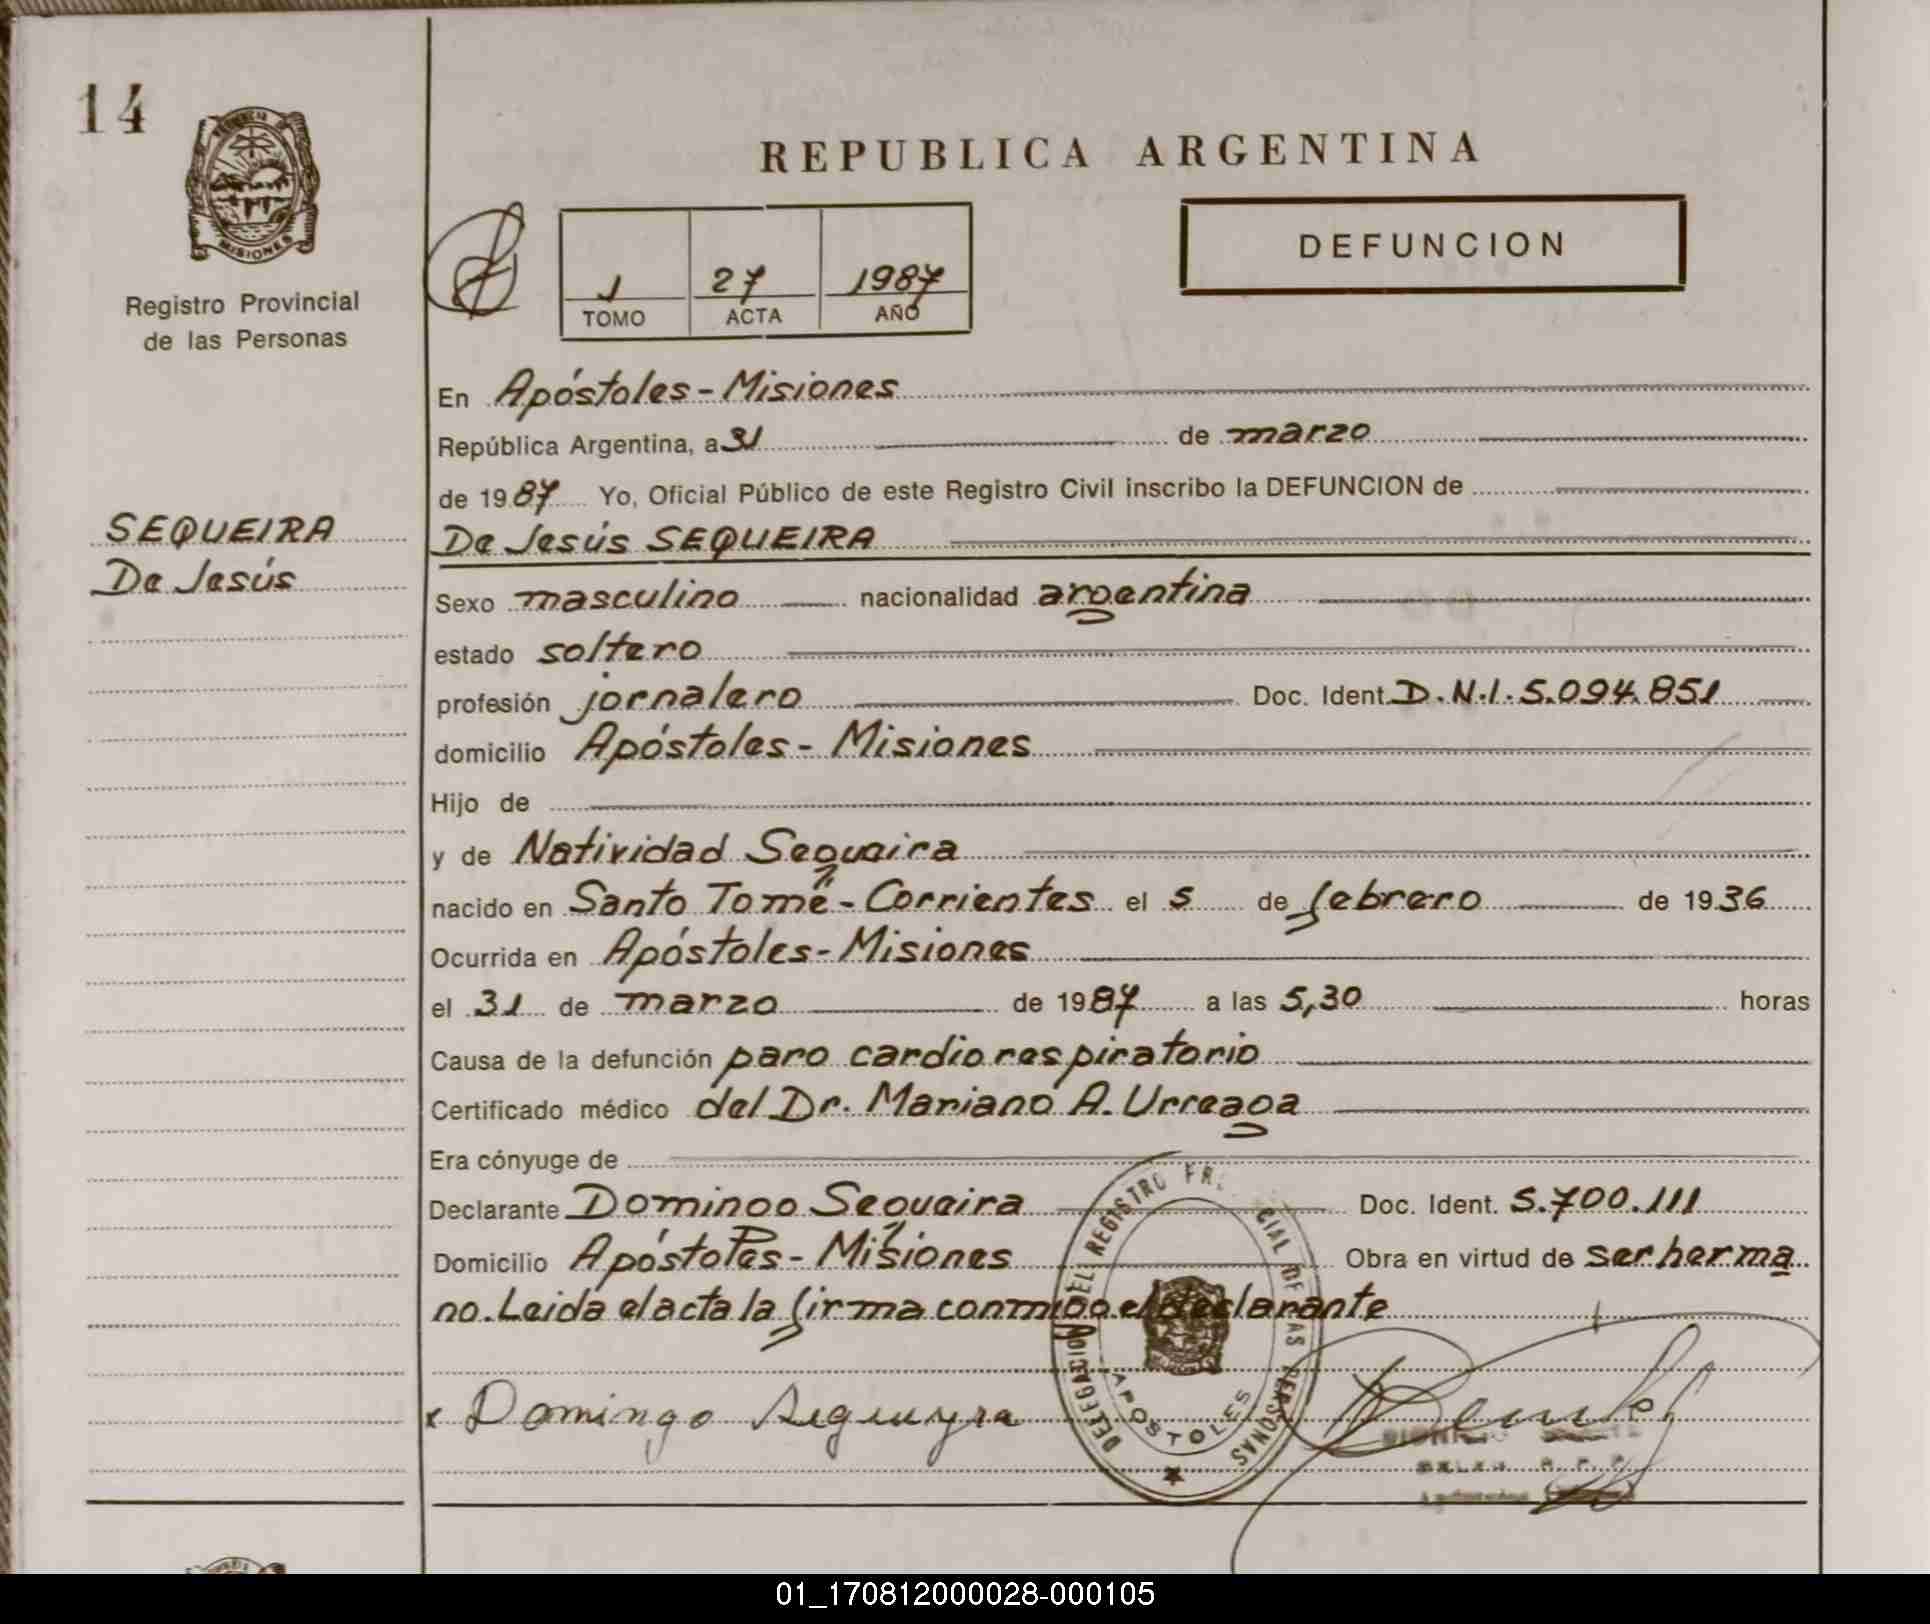 14
PROVINCIA DE
MISIONES
Registro Provincial
de las Personas
SEQUEIRA
De Jesús
REPUBLICA ARGENTINA
DEFUNCION
1 27 1987
TOMO ACTA AÑO
En Apóstoles - Misiones
República Argentina, a 31 de marzo
de 1987 Yo, Oficial Público de este Registro Civil inscribo la DEFUNCION de
De Jesús SEQUEIRA
Sexo masculino nacionalidad argentina
estado soltero
profesión jornalero Doc. Ident. D.N.I. 5.094.851
domicilio Apóstoles - Misiones
Hijo de
y de Natividad Sequeira
nacido en Santo Tomé - Corrientes el 5 de febrero de 1936
Ocurrida en Apóstoles - Misiones
el 31 de marzo de 1987 a las 5,30 horas
Causa de la defunción paro cardio respiratorio
Certificado médico del Dr. Mariano A. Urreaga
Era cónyuge de
Declarante Domingo Sequeira Doc. Ident. 5.700.111
Domicilio Apóstoles - Misiones Obra en virtud de ser herma
no. Leida el acta la firma conmigo el declarante
DELEGACION DEL REGISTRO PROVINCIAL DE LAS PERSONAS
APOSTOLES
x Domingo Segueyra
01_170812000028-000105